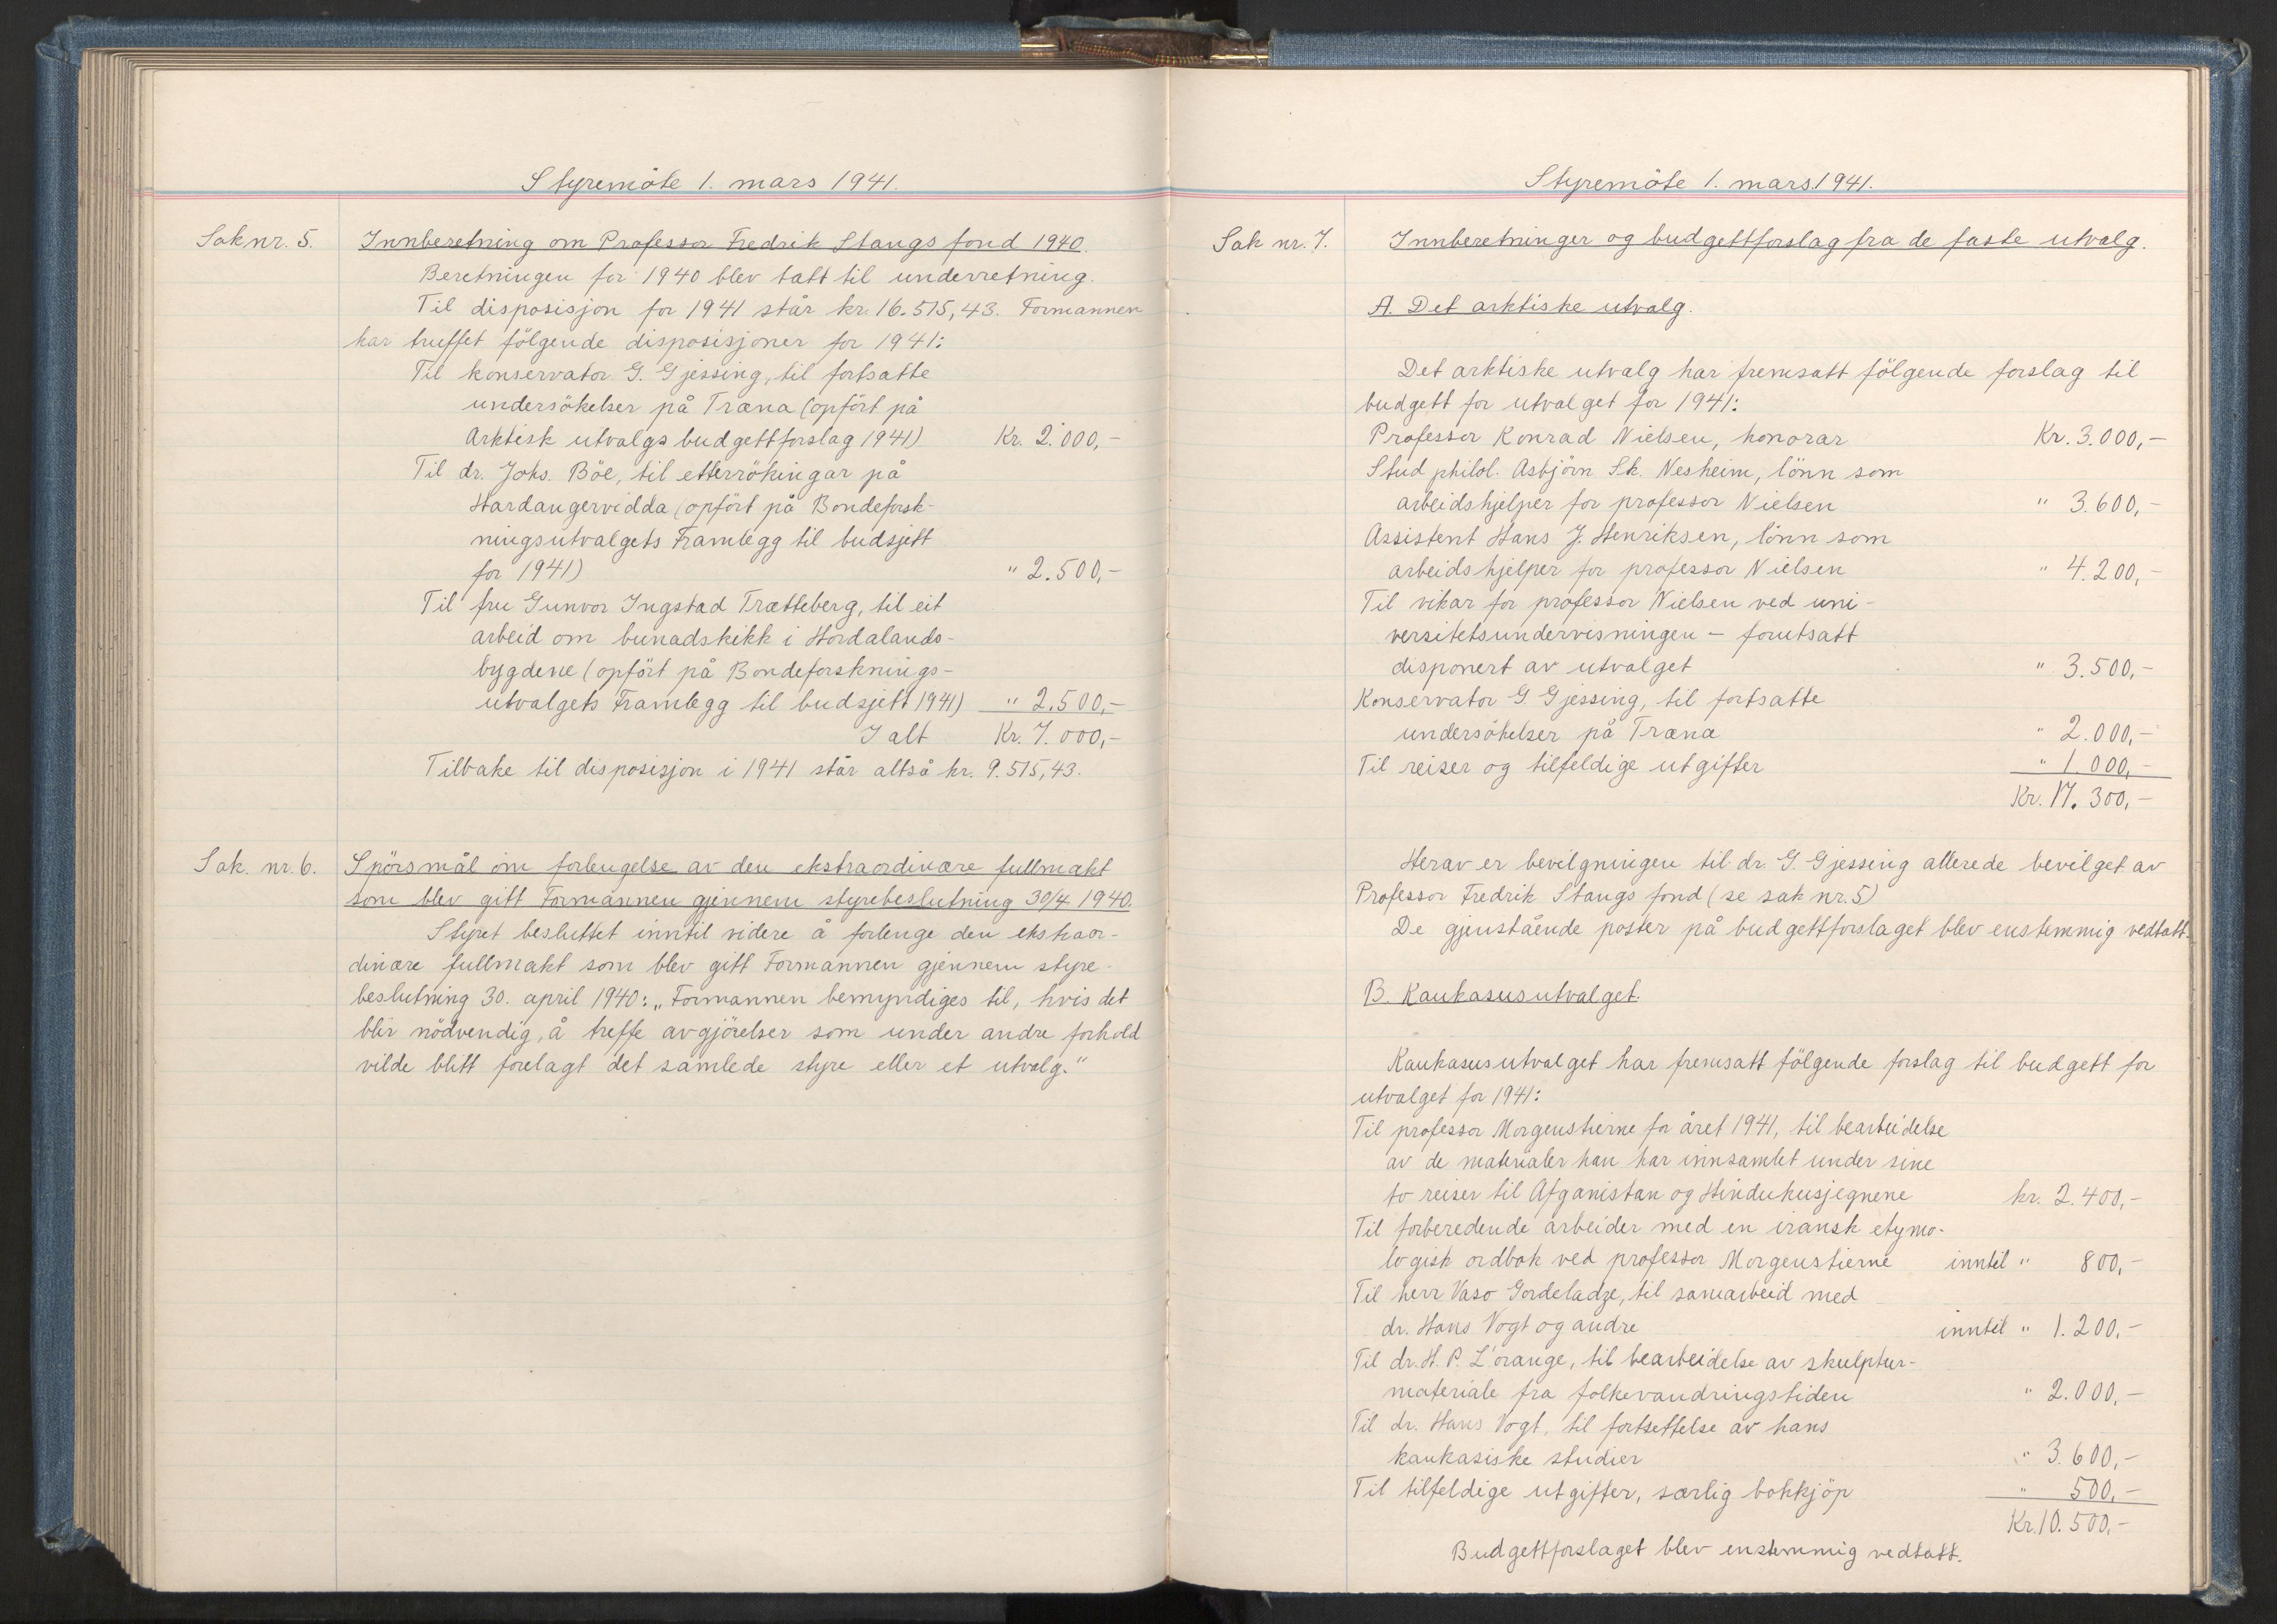 Styremöte 1. mars 1941.
Sak nr. 5. Innberetning om Professor Fredrik Stangs fond 1940.
Beretningen for 1940 blev tatt til underretning.
Til disposisjon for 1941 står kr. 16.515,43. Formannen
har truffet fölgende disposisjoner for 1941:
Til konservator G. Gjessing, til fortsatte
undersökelser på Træna (opfört på
Arktisk utvalgs budgettforslag 1941) Kr. 2.000,-
Til dr. Johs. Böe, til etterrökingar på
Hardangervidda (opfört på Bondeforsk-
ningsutvalgets Framlegg til budsjett
for 1941) " 2.500,-
Til fru Gunvor Ingstad Trætteberg, til eit
arbeid om bunadskikk i Hordalands-
bygdene (opfört på Bondeforsknings-
utvalgets Framlegg til budsjett 1941) " 2.500,-
I alt Kr. 7.000,-
Tilbake til disposisjon i 1941 står altså kr. 9.515,43.
Sak. nr. 6. Spörsmål om forlengelse av den ekstraordinære fullmakt
som blev gitt Formannen gjennem styrebeslutning 30/4 1940.
Styret besluttet inntil videre å forlenge den ekstraor-
dinære fullmakt som blev gitt Formannen gjennem styre-
beslutning 30. april 1940: „Formannen bemyndiges til, hvis det
blir nödvendig, å treffe avgjörelser som under andre forhold
vilde blitt forelagt det samlede styre eller et utvalg."
Styremöte 1. mars 1941.
Sak nr. 7. Innberetninger og budgettforslag fra de faste utvalg.
A. Det arktiske utvalg.
Det arktiske utvalg har fremsatt fölgende forslag til
budgett for utvalget for 1941:
Professor Konrad Nielsen, honorar Kr. 3.000,-
Stud philol. Asbjörn Sk. Nesheim, lönn som
arbeidshjelper for professor Nielsen " 3.600,-
Assistent Hans J. Henriksen, lönn som
arbeidshjelper for professor Nielsen " 4.200,-
Til vikar for professor Nielsen ved uni-
versitetsundervisningen - forutsatt
disponert av utvalget " 3.500,-
Konservator G. Gjessing, til fortsatte
undersökelser på Træna " 2.000,-
Til reiser og tilfeldige utgifter " 1.000,-
Kr. 17.300,-
Herav er bevilgningen til dr. G. Gjessing allerede bevilget av
Professor Fredrik Stangs fond (se sak nr. 5)
De gjenstående poster på budgettforslaget blev enstemmig vedtatt.
B. Kaukasusutvalget.
Kaukasusutvalget har fremsatt fölgende forslag til budgett for
utvalget for 1941:
Til professor Morgenstierne for året 1941, til bearbeidelse
av de materialer han har innsamlet under sine
to reiser til Afganistan og Hindukusjegnene kr. 2.400,-
Til forberedende arbeider med en iransk etymo-
logisk ordbok ved professor Morgenstierne inntil " 800,-
Til herr Vaso Gordeladze, til samarbeid med
dr. Hans Vogt og andre inntil " 1.200,-
Til dr. H. P. L'orange, til bearbeidelse av skulptur-
materiale fra folkevandringstiden " 2.000,-
Til dr. Hans Vogt, til fortsettelse av hans
kaukasiske studier " 3.600,-
Til tilfeldige utgifter, særlig bokkjöp " 500,-
Kr. 10.500,-
Budgettforslaget blev enstemmig vedtatt.